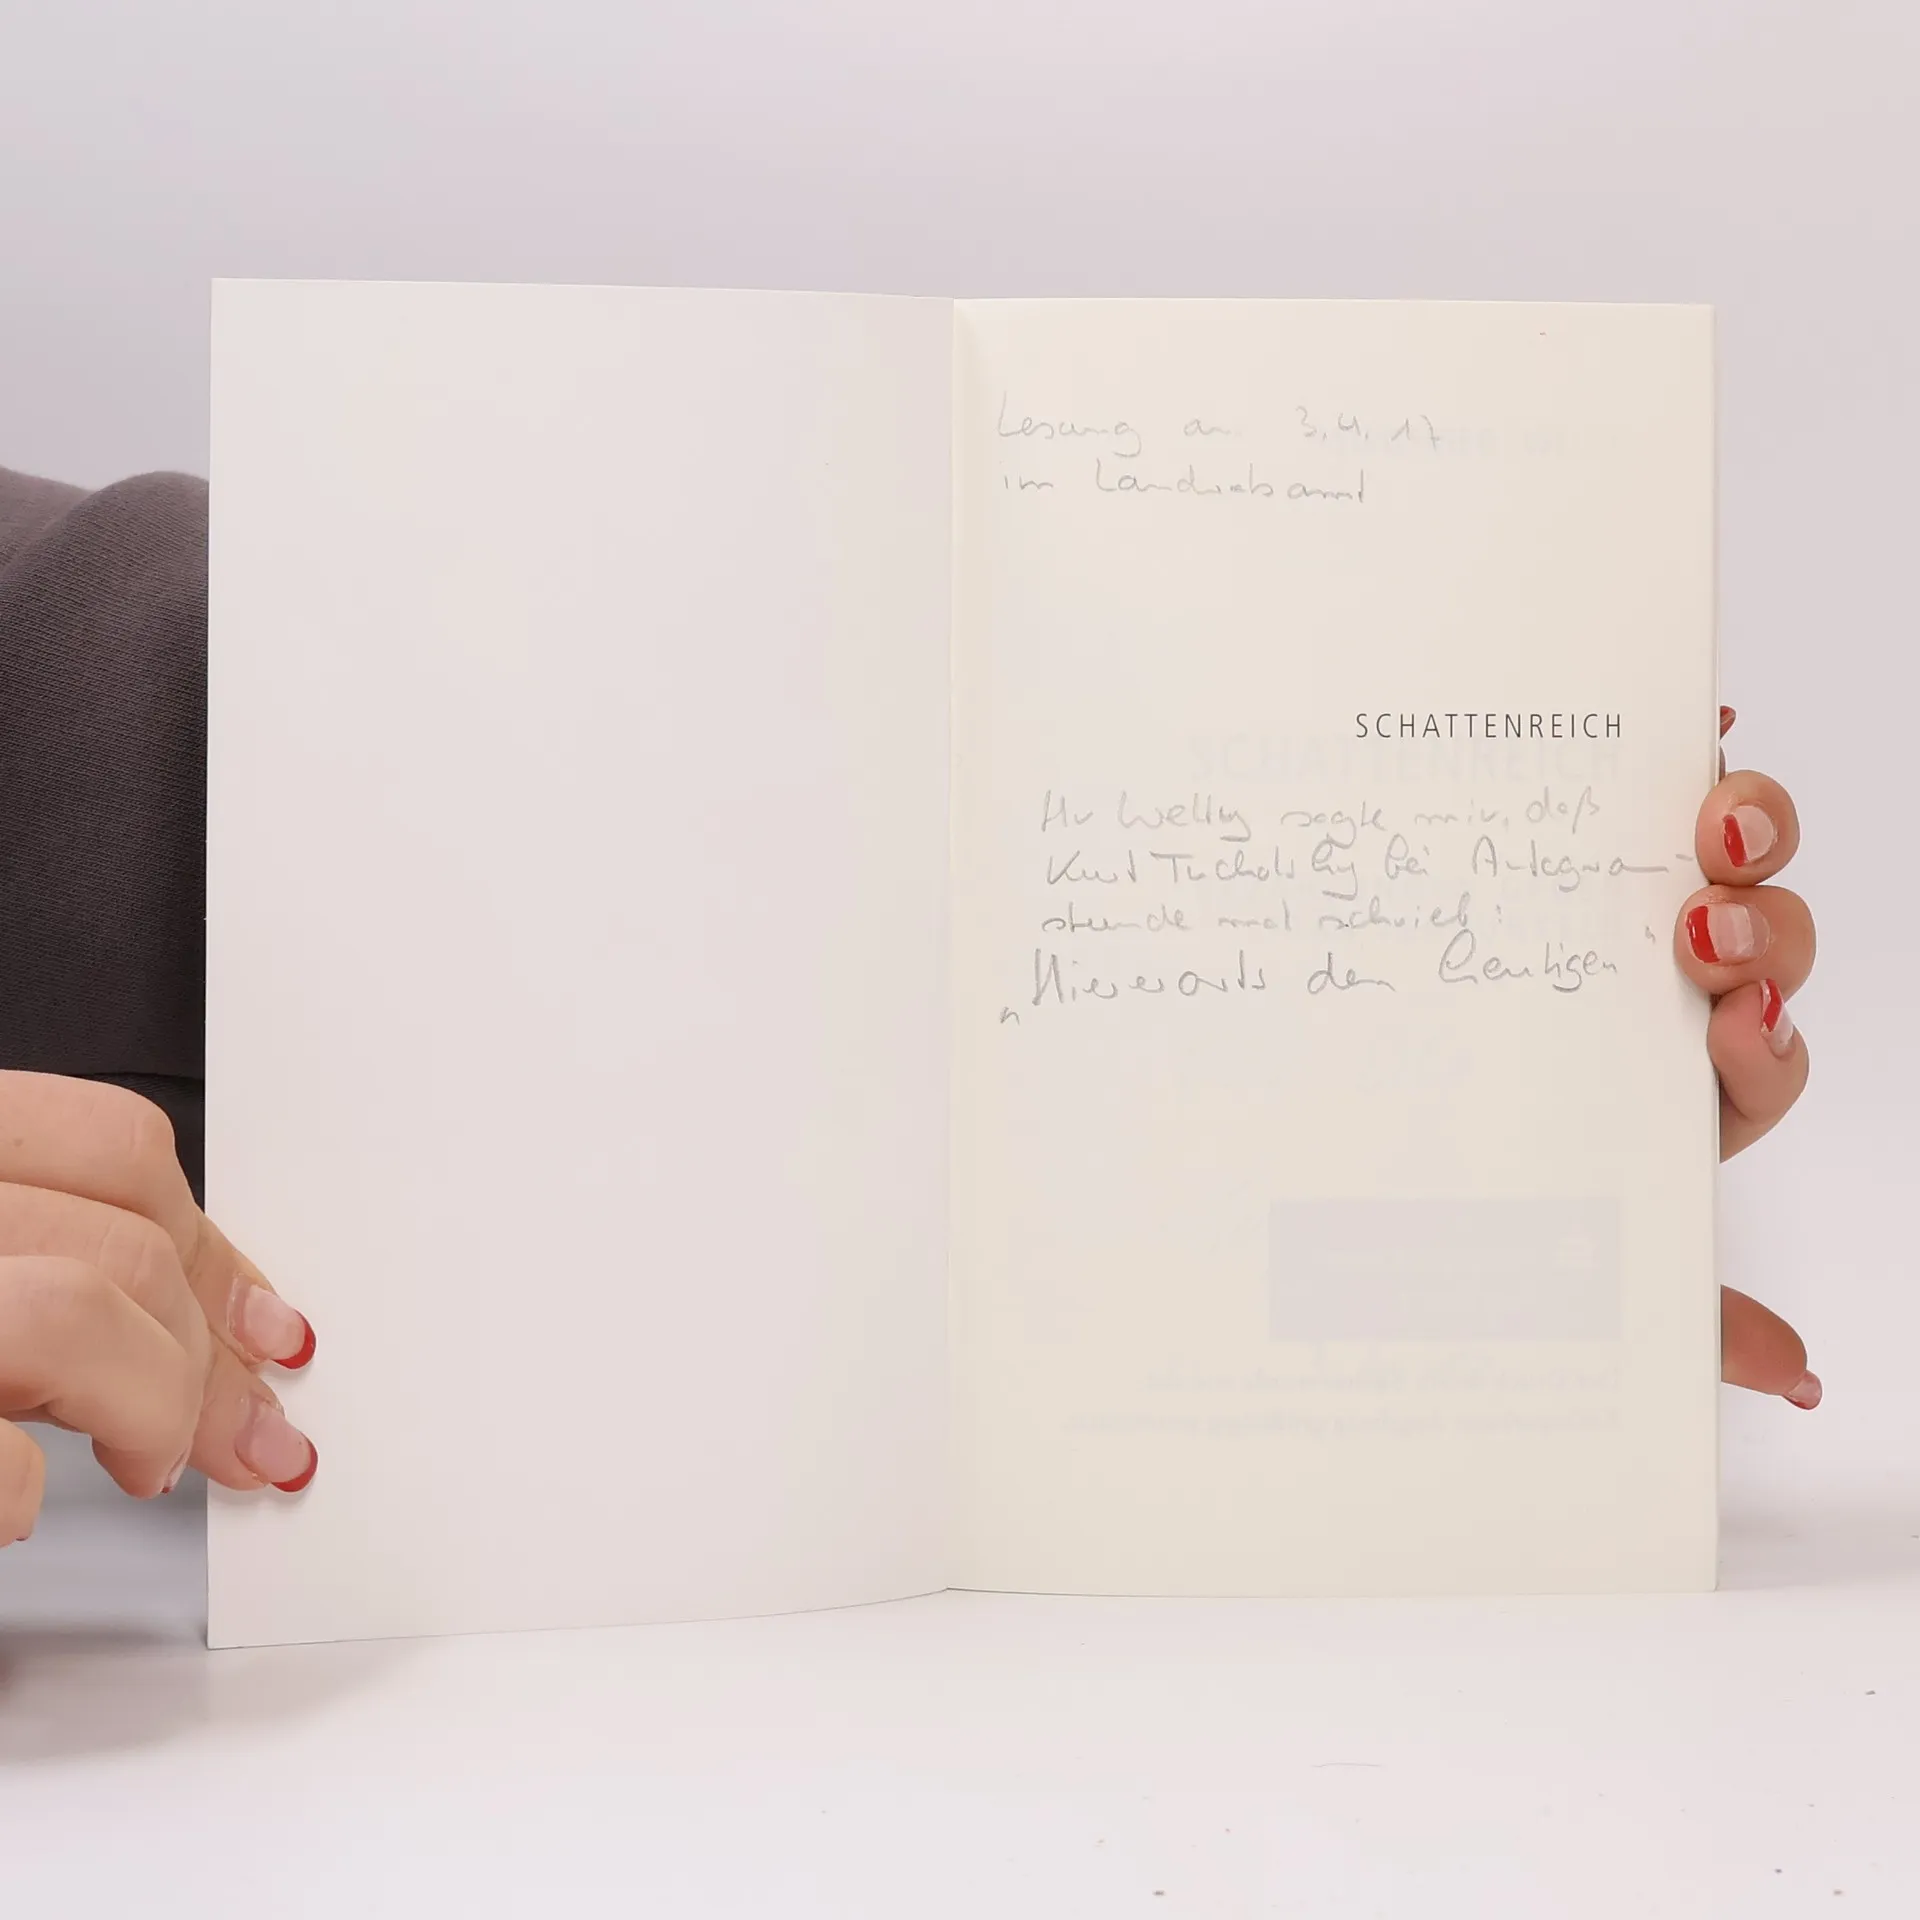 Lesung am 3.4.17
im Landratsamt
SCHATTENREICH
Hr Welling sagte mir, daß
Kurt Tucholsky bei Autogramm-
stunde mal schrieb:
„Hierorts den Heutigen"